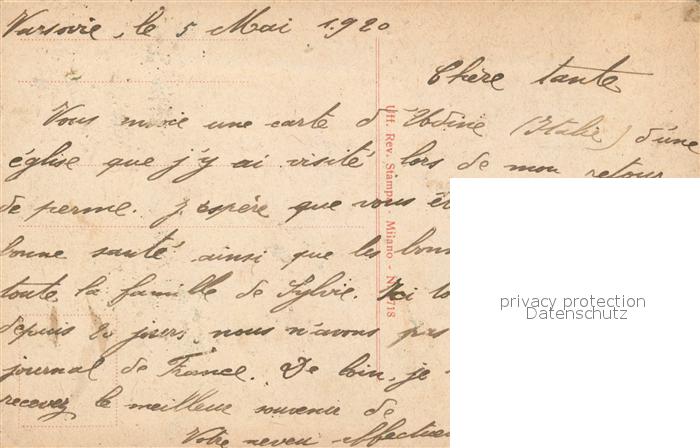 Varsovie, le 5 Mai 1920
Chère tante
Vous une carte d'Udine (Italie) d'une
église que j'y ai visité lors de mon retour
de perme. J'espère que vous
bonne santé ainsi que les
toute la famille de Sylvie. Ici
depuis 20 jours, nous n'avons pas
journal de France. De loin, je
recevez le meilleur souvenir de
Votre neveu
Uff. Rev. Stampa - Milano - N. 718
privacy protection
Datenschutz